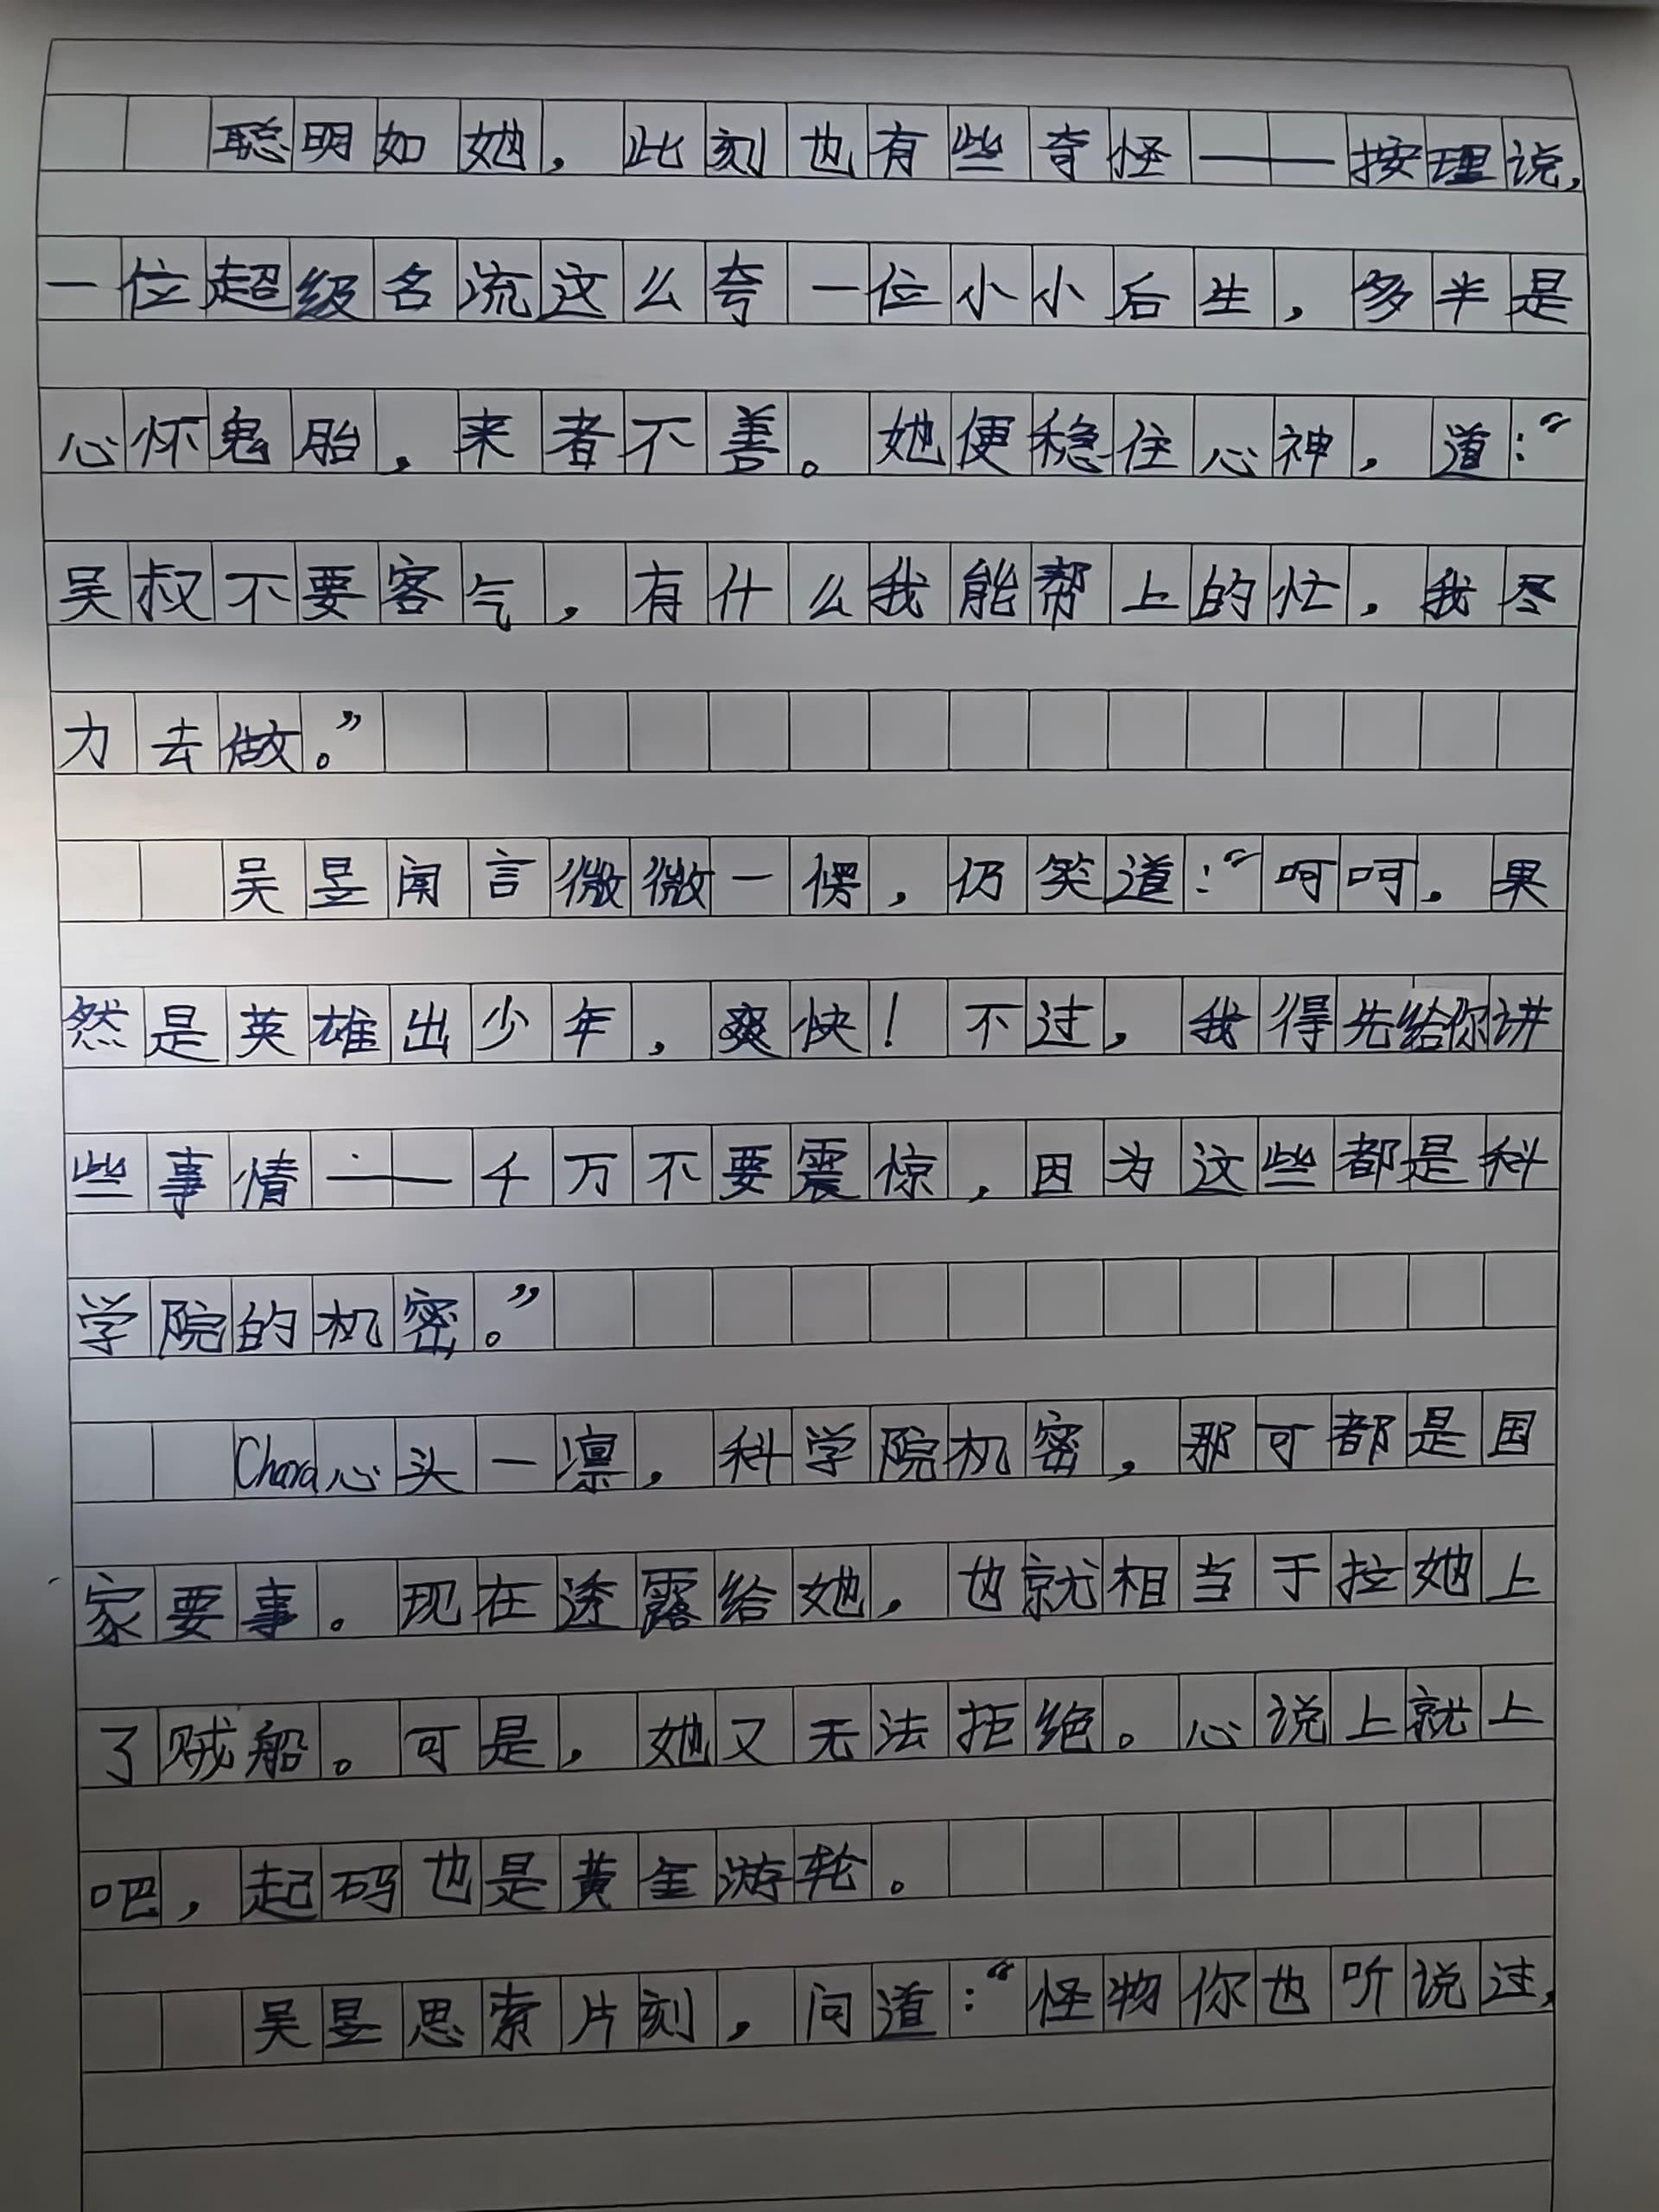 聪明如她，此刻也有些奇怪——按理说，
一位超级名流这么夸一位小小后生，多半是
心怀鬼胎，来者不善。她便稳住心神，道：“
吴叔不要客气，有什么我能帮上的忙，我尽
力去做。”
吴昱闻言微微一愣，仍笑道：“呵呵，果
然是英雄出少年，爽快！不过，我得先给你讲
些事情——千万不要震惊，因为这些都是科
学院的机密。”
Chara心头一凛，科学院机密，那可都是国
家要事。现在透露给她，也就相当于拉她上
了贼船。可是，她又无法拒绝。心说上就上
吧，起码也是黄金游轮。
吴昱思索片刻，问道：“怪物你也听说过，